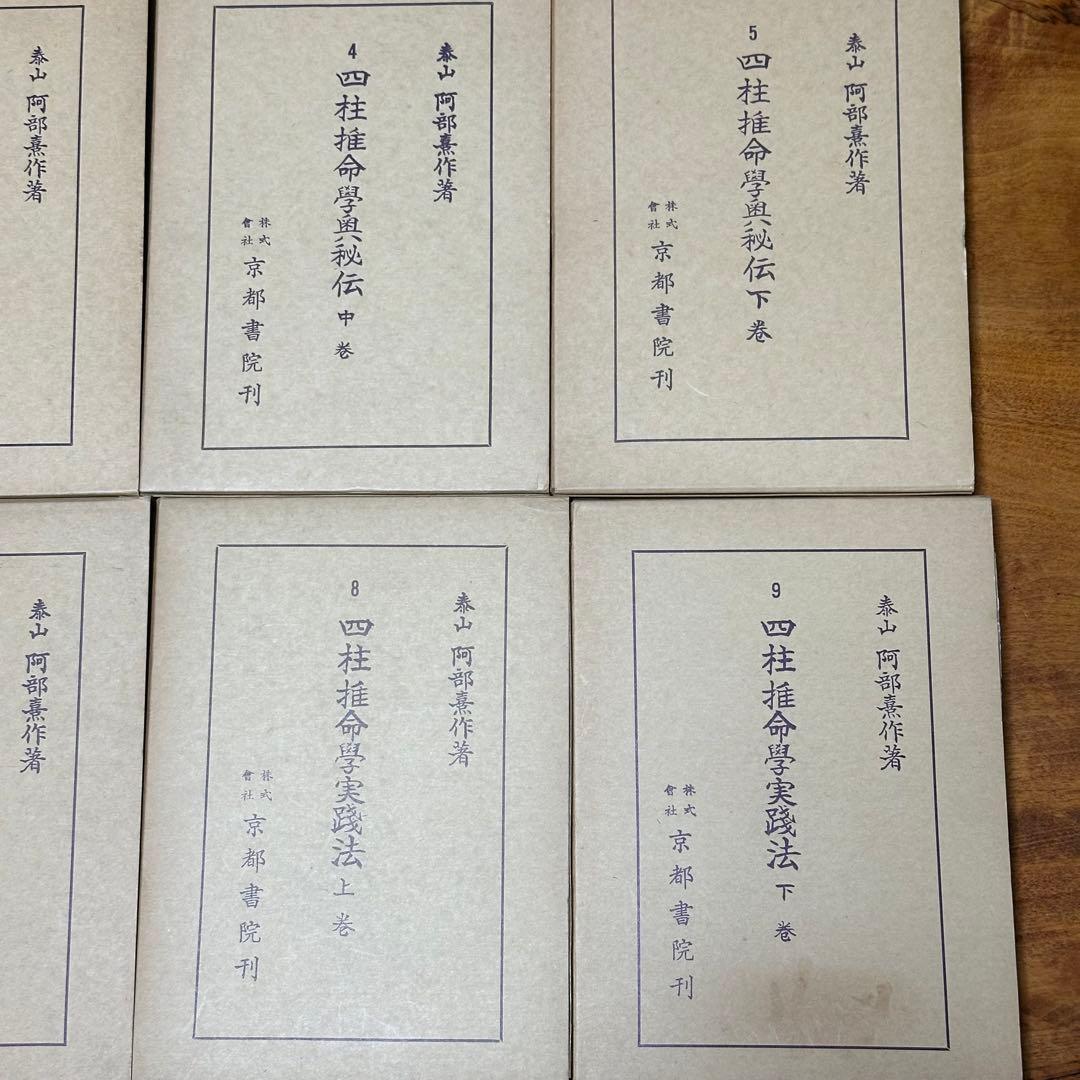 泰山 阿部熹作著
4
四柱推命學奥秘伝 中巻
泰山 阿部熹作著
株式會社 京都書院刊
5
四柱推命學奥秘伝 下巻
泰山 阿部熹作著
株式會社 京都書院刊
泰山 阿部熹作著
8
四柱推命學実踐法 上巻
泰山 阿部熹作著
株式會社 京都書院刊
9
四柱推命學実踐法 下巻
泰山 阿部熹作著
株式會社 京都書院刊